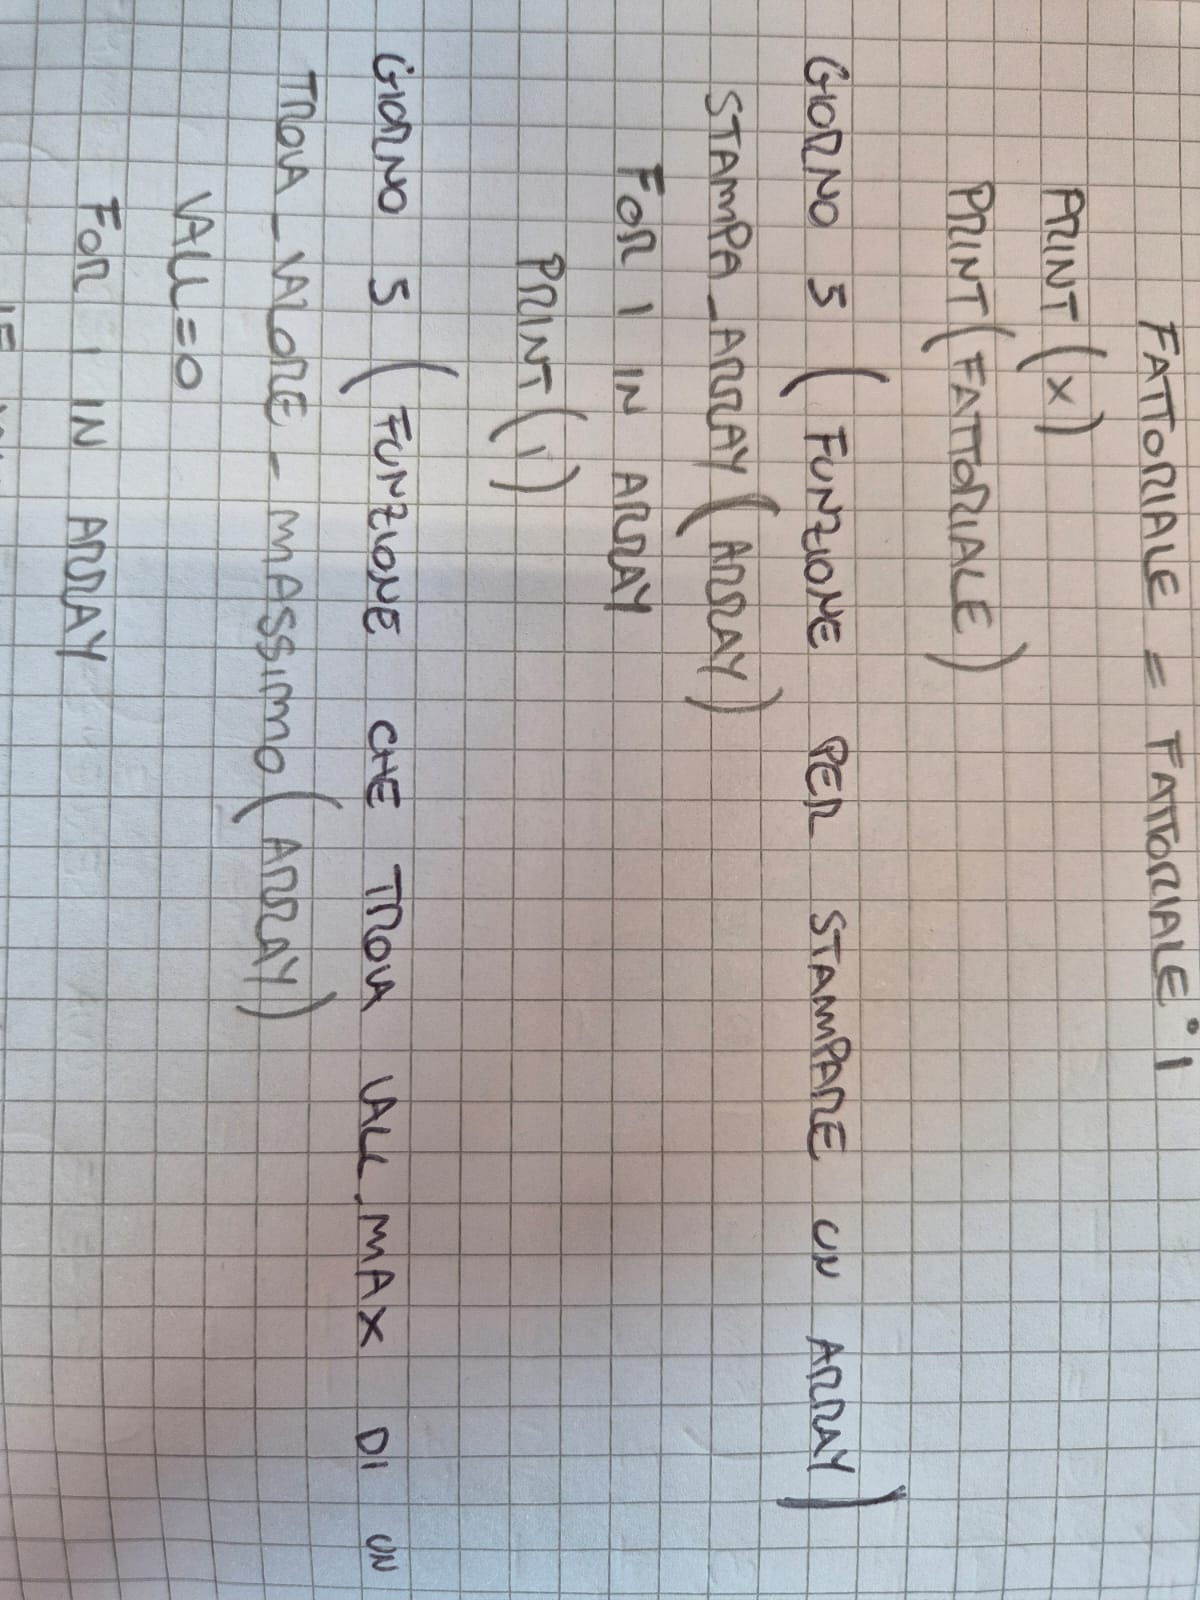 FATTORIALE = FATTORIALE • I
PRINT (X)
PRINT (FATTORIALE)
GIORNO 5 (FUNZIONE PER STAMPARE UN ARRAY)
STAMPA_ARRAY (ARRAY)
FOR I IN ARRAY
PRINT (I)
GIORNO 5 (FUNZIONE CHE TROVA VAL_MAX DI UN
TROVA_VALORE_MASSIMO (ARRAY)
VAL=0
FOR I IN ARRAY
IF